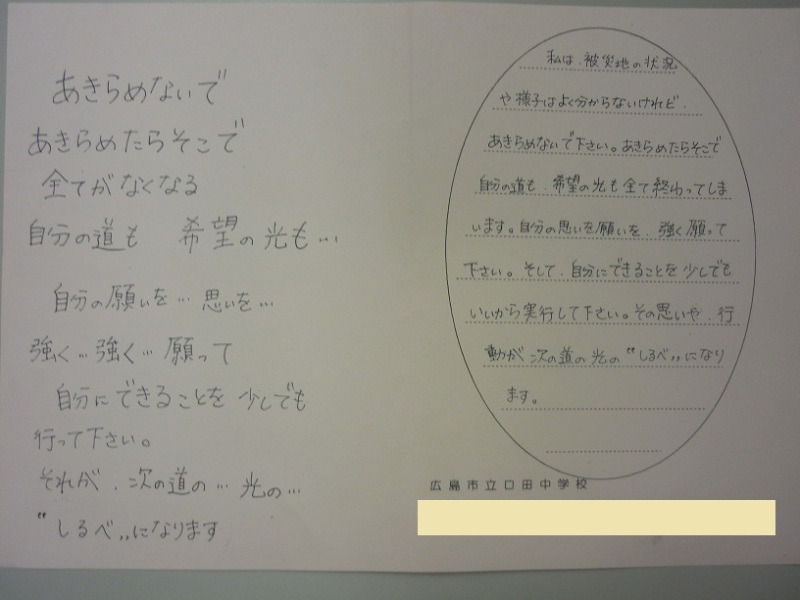 あきらめないで
あきらめたらそこで
全てがなくなる
自分の道も 希望の光も…
自分の願いを… 思いを…
強く…強く… 願って
自分にできることを 少しでも
行って下さい。
それが、次の道の… 光の…
“しるべ„になります
私は、被災地の状況
や様子はよく分からないけれど、
あきらめないで下さい。あきらめたらそこで
自分の道も、希望の光も全て終わってしま
います。自分の思いを願いを、強く願って
下さい。そして、自分にできることを少しでも
いいから実行して下さい。その思いや、行
動が、次の道の光の“しるべ„になり
ます。
広島市立口田中学校